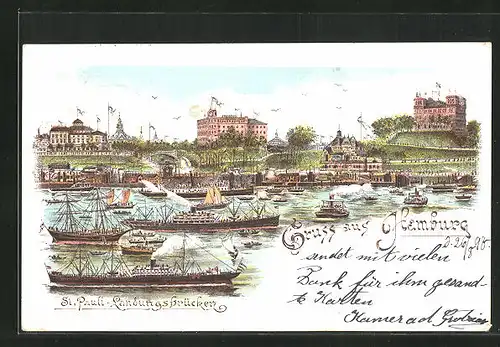 Gruss aus Hamburg
d. 26/8 98
sendet mit vielen
Dank für ihm gesand-
te Karten
Kamerad
St. Pauli-Landungsbrücken